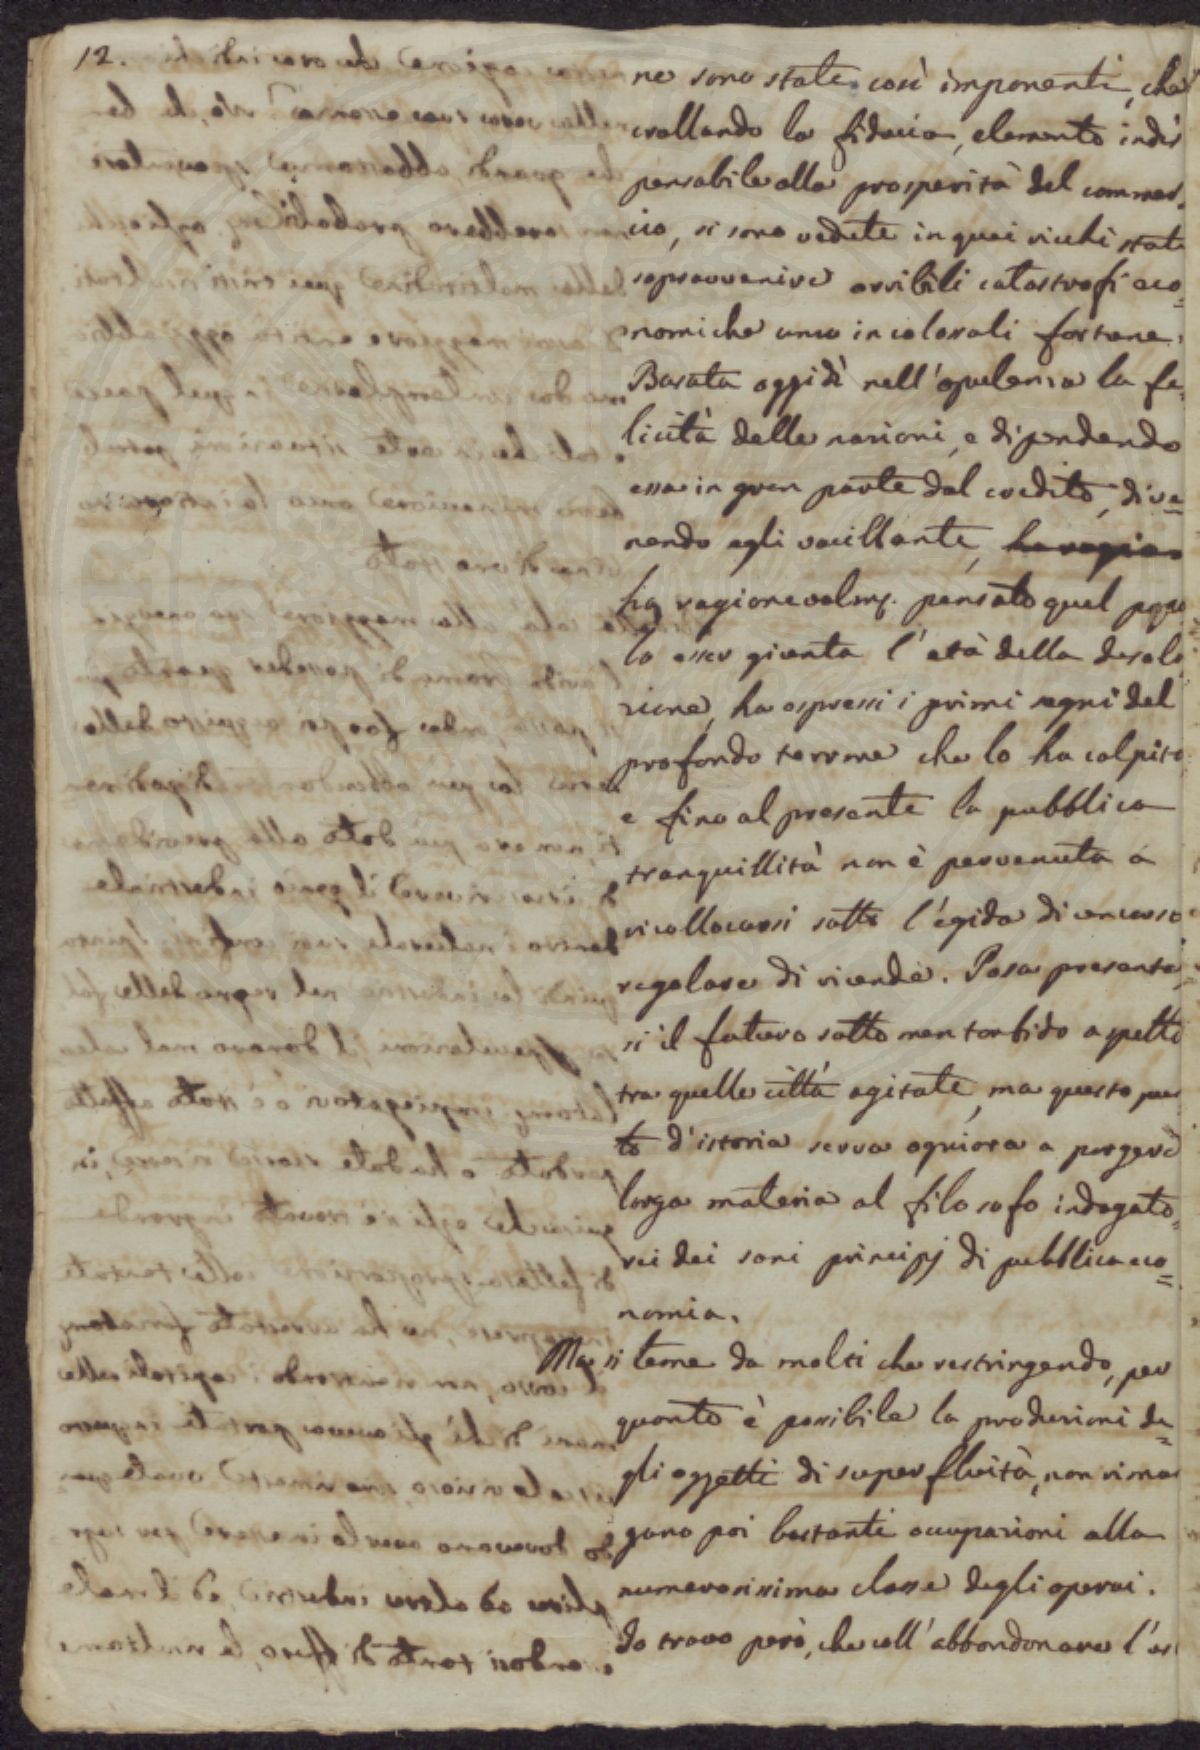 12.
ne sono state così imponenti, che
crollando la fiducia, elemento indis
pensabile alla prosperità del commer,
cio, si sono vedute in quei ricchi stati
sopravvenire orribili catastrofi eco=
nomiche anco in colossali fortune.
Basata oggidì nell'opulenza la fe,
licità delle nazioni, e dipendendo
essa in gran parte dal credito, dive=
nendo egli vacillante,
ha ragionevolm. pensato quel popo
lo esser giunta l'età della desola
zione, ha espressi i primi segni del
profondo terrore che lo ha colpito
e fino al presente la pubblica
tranquillità non è pervenuta a
ricollocarsi sotto l'égida di un corso
regolare di vicende. Posa presentar
si il futuro sotto men torbido aspetto
tra quelle città agitate, ma questo pun
to d'istoria serva ognora a porgere
larga materia al filosofo indagato=
re dei sani principj di pubblica eco=
nomia.
Ma si teme da molti che restringendo, per
quanto è possibile la produzioni de=
gli oggetti di superfluità, non riman
gano poi bastanti occupazioni alla
numerosissima classe degli operai.
Io trovo però, che coll'abbandonare l'es